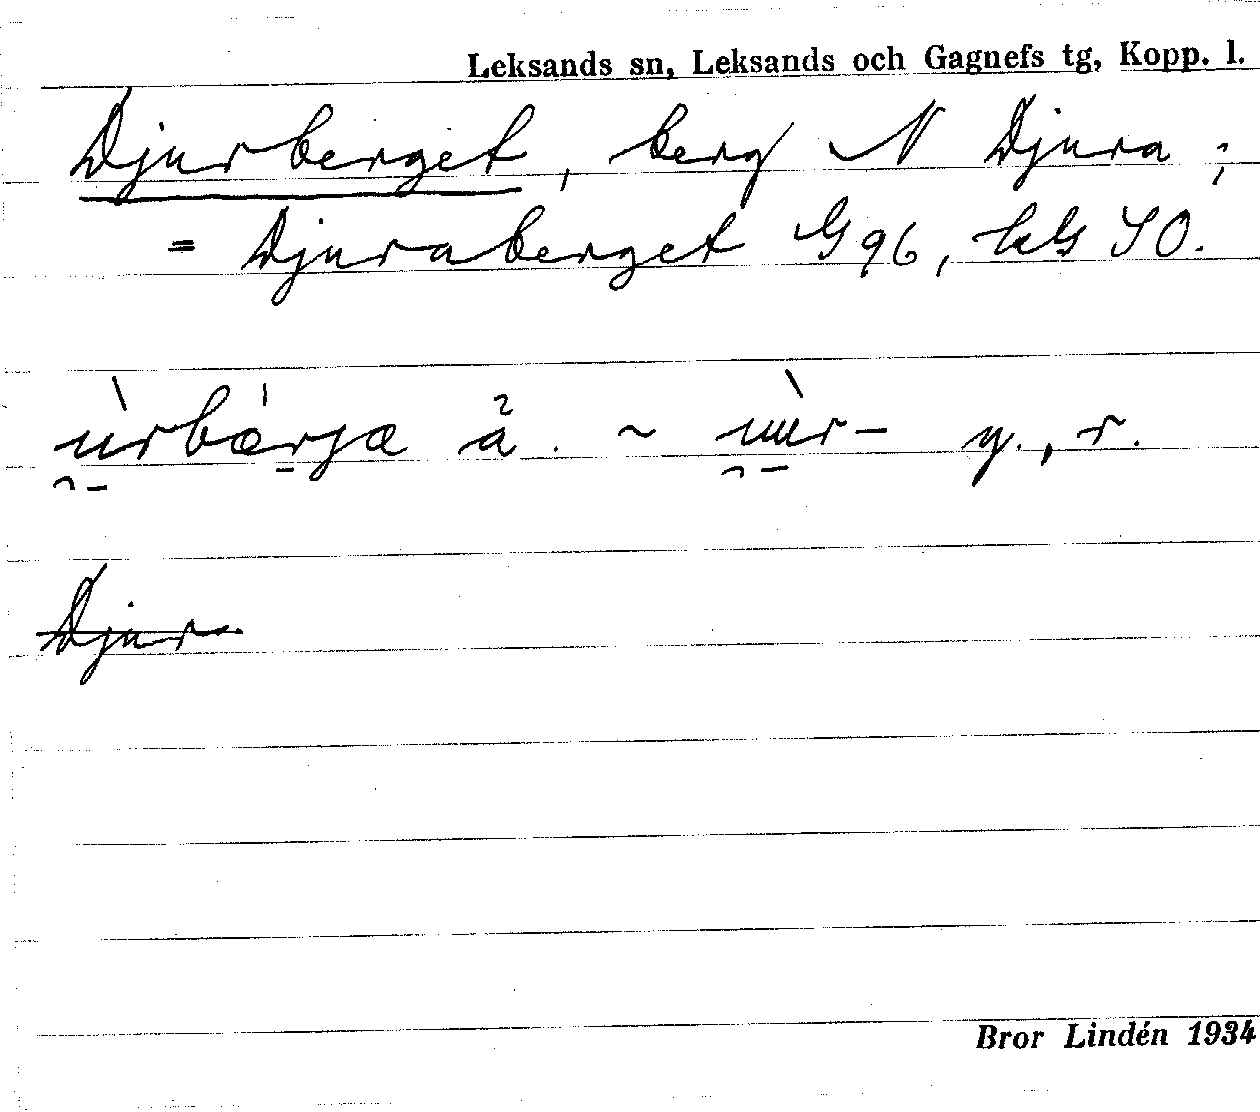 Leksands sn, Leksands och Gagnefs tg, Kopp. l.
Djurberget, berg N Djura;
= Djuraberget G 96, kbl SO.
ùrbärjä å. ~ ùùr- y., r.
Djur-
Bror Lindén 1934